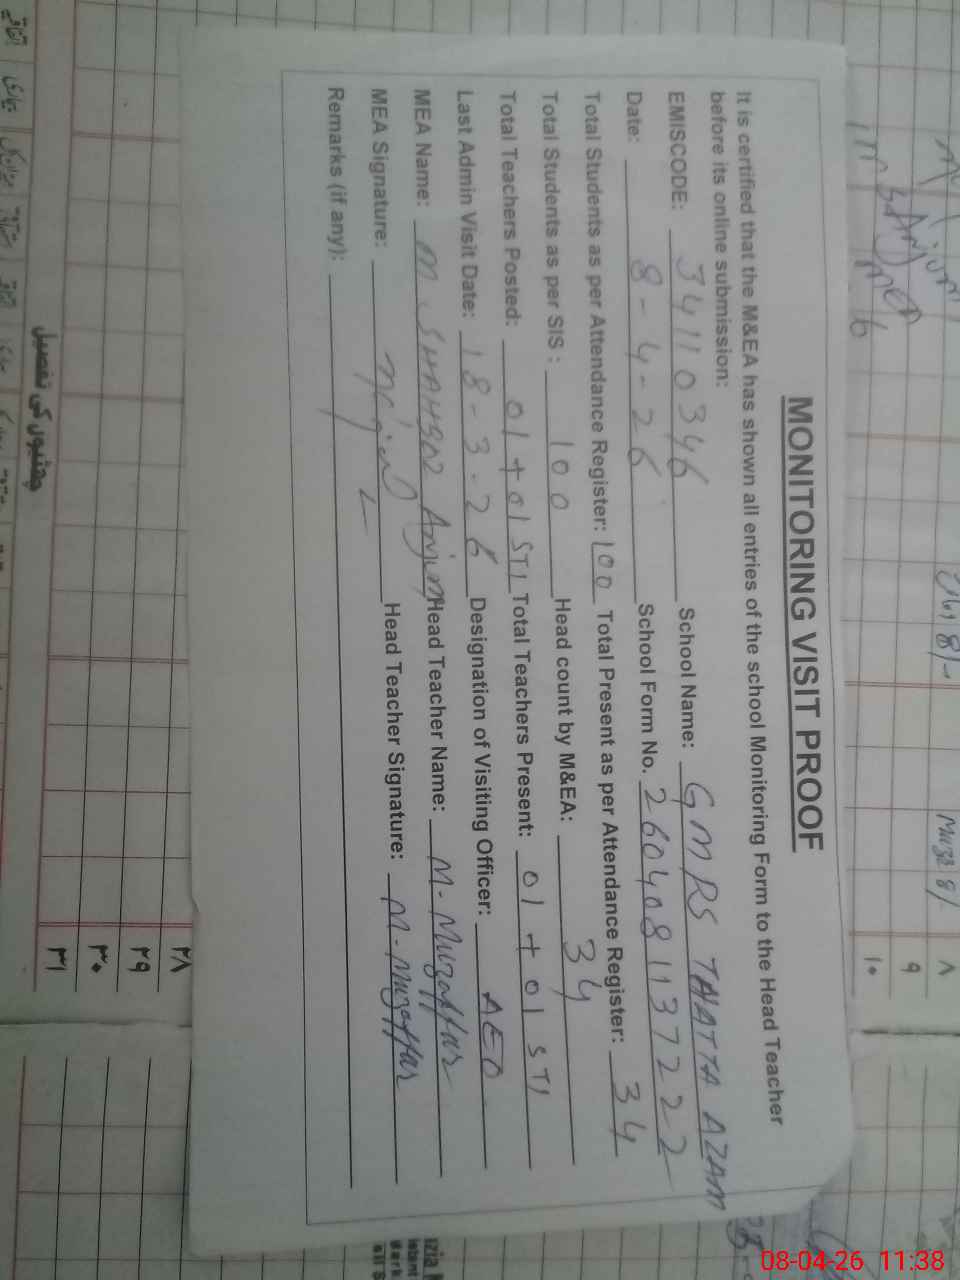 MONITORING VISIT PROOF
It is certified that the M&EA has shown all entries of the school Monitoring Form to the Head Teacher
before its online submission:
EMISCODE: 34110346 School Name: GMPS TALATTA AZAM
Date: 8-4-26 School Form No. 2604081137222
Total Students as per Attendance Register: 100 Total Present as per Attendance Register: 34
Total Students as per SIS : 100 Head count by M&EA: 34
Total Teachers Posted: 01+01 STI Total Teachers Present: 01+01 STI
Last Admin Visit Date: 18-3-26 Designation of Visiting Officer: AEO
MEA Name: M. SHAHBAZ Anjum Head Teacher Name: M. Muzaffar
MEA Signature: Head Teacher Signature: M. Muzaffar
Remarks (if any):
۸
۹
۱۰
۲۸
۲۹
۳۰
۳۱
چھٹیوں کی تفصیل
08-04-26 11:38